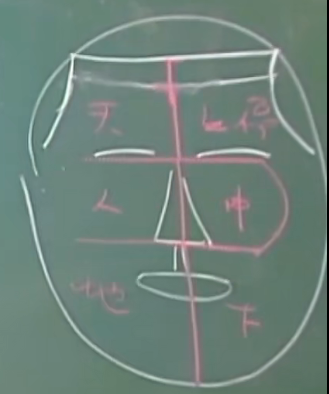 天 上停
人 中
地 下